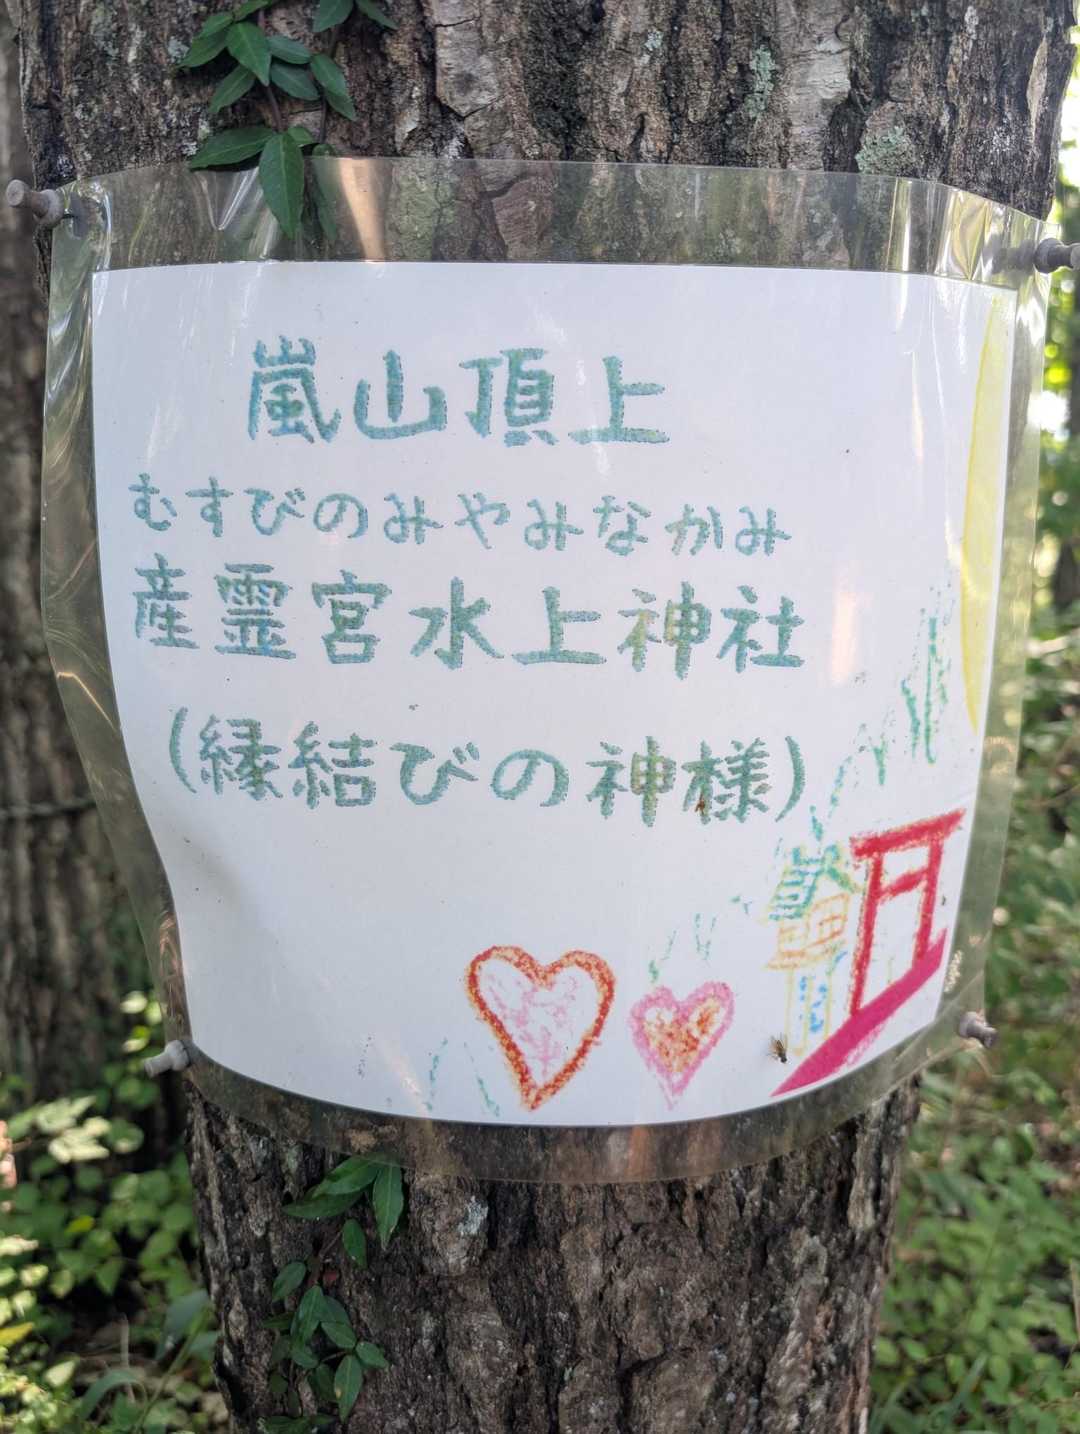 嵐山頂上
むすびのみやみなかみ
産霊宮水上神社
(縁結びの神様)